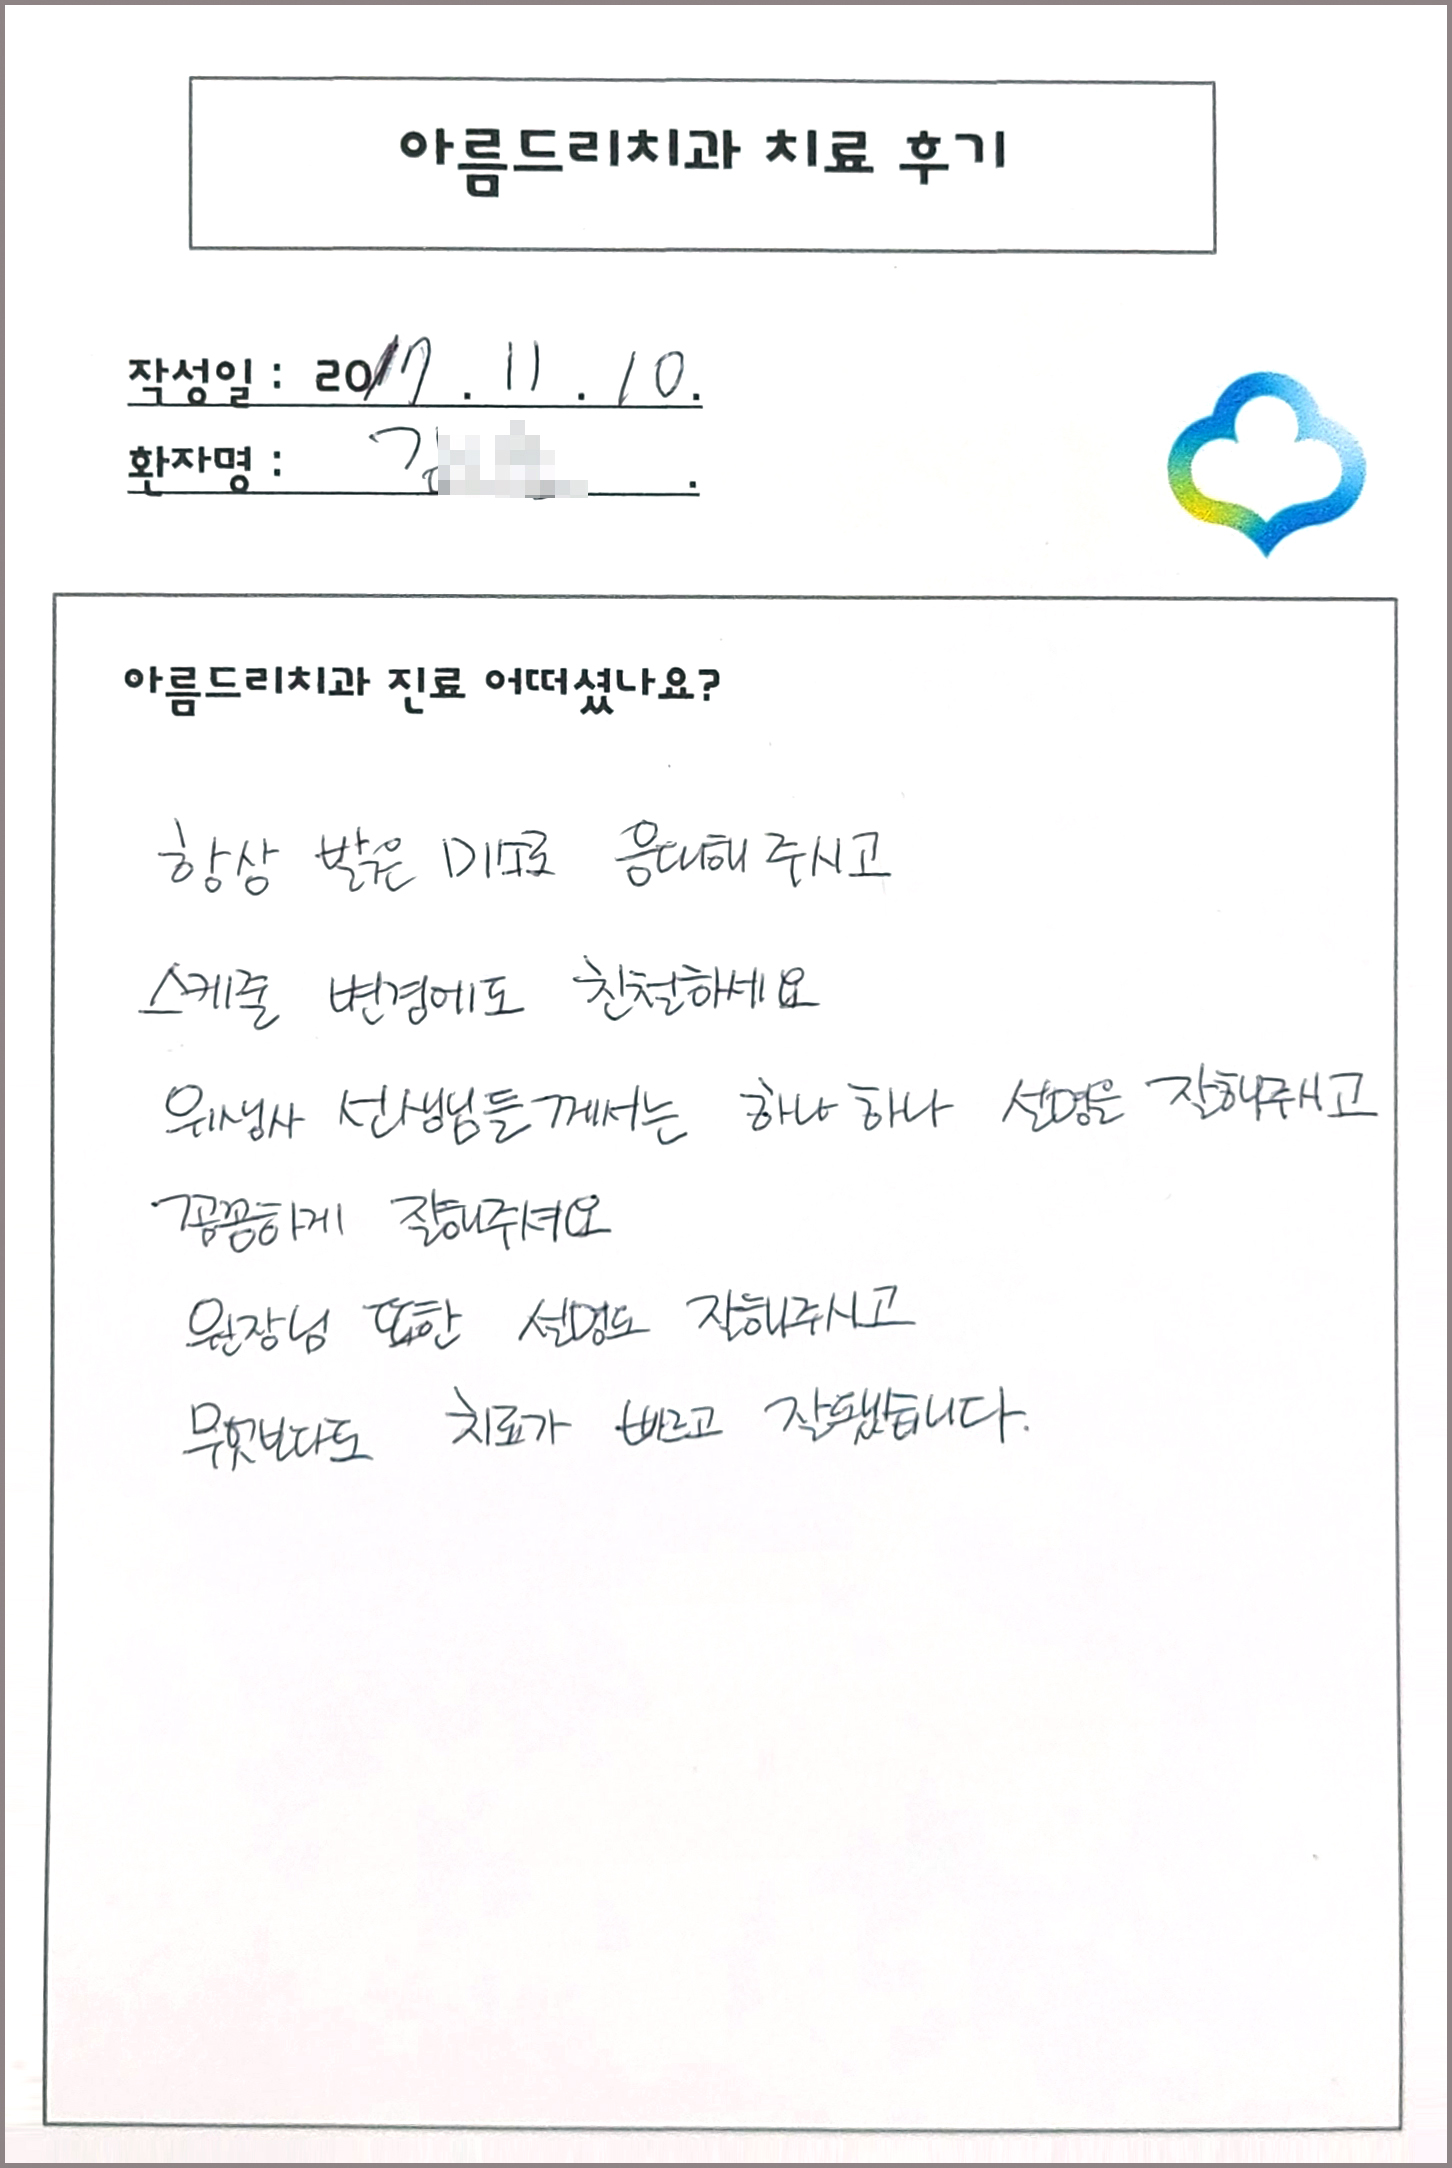 아름드리치과 치료 후기
작성일 : 2017 . 11 . 10.
환자명 : 김 .
아름드리치과 진료 어떠셨나요?
항상 밝은 미소로 응대해 주시고
스케줄 변경에도 친절하세요
위생사 선생님들께서는 하나하나 설명을 잘해주시고
꼼꼼하게 잘해주셔요
원장님 또한 설명도 잘해주시고
무엇보다도 치료가 빠르고 잘됐습니다.